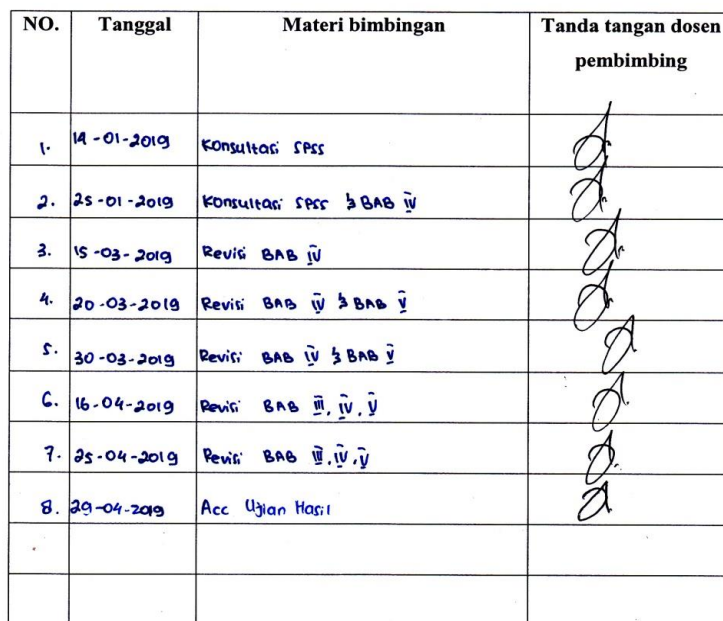 NO. Tanggal Materi bimbingan Tanda tangan dosen
pembimbing
1. 14-01-2019 Konsultasi SPSS
2. 25-01-2019 Konsultasi SPSS & BAB IV
3. 15-03-2019 Revisi BAB IV
4. 20-03-2019 Revisi BAB IV & BAB V
5. 30-03-2019 Revisi BAB IV & BAB V
6. 16-04-2019 Revisi BAB III, IV, V
7. 25-04-2019 Revisi BAB III, IV, V
8. 29-04-2019 Acc Ujian Hasil